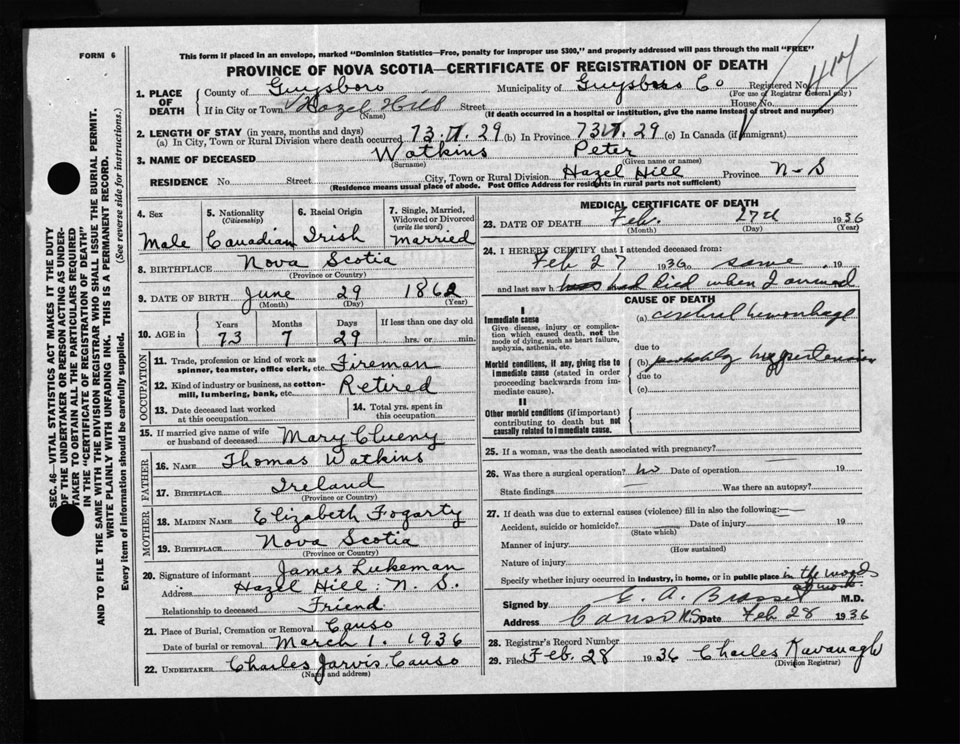 FORM 6
This form if placed in an envelope, marked "Dominion Statistics—Free, penalty for improper use $300," and properly addressed will pass through the mail "FREE"
PROVINCE OF NOVA SCOTIA—CERTIFICATE OF REGISTRATION OF DEATH
1. PLACE OF DEATH
County of Guysboro Municipality of Guysboro Co Registered No.
(For use of Registrar General only)
If in City or Town Hazel Hill Street House No.
(Name) (If death occurred in a hospital or institution, give the name instead of street and number)
2. LENGTH OF STAY (in years, months and days)
(a) In City, Town or Rural Division where death occurred 73. 7. 29 (b) In Province 73. 7. 29 (c) In Canada (if immigrant)
3. NAME OF DECEASED Watkins Peter
(Surname) (Given name or names)
RESIDENCE No. Street City, Town or Rural Division Hazel Hill Province N-S
(Residence means usual place of abode. Post Office Address for residents in rural parts not sufficient)
4. Sex Male
5. Nationality (Citizenship) Canadian
6. Racial Origin Irish
7. Single, Married, Widowed or Divorced (write the word) Married
8. BIRTHPLACE Nova Scotia
(Province or Country)
9. DATE OF BIRTH June 29 1862
(Month) (Day) (Year)
10. AGE in Years Months Days If less than one day old
73 7 29 hrs. or min.
OCCUPATION
11. Trade, profession or kind of work as spinner, teamster, office clerk, etc. Fireman
12. Kind of industry or business, as cotton-mill, lumbering, bank, etc. Retired
13. Date deceased last worked at this occupation
14. Total yrs. spent in this occupation
15. If married give name of wife or husband of deceased Mary Clueny
FATHER
16. NAME Thomas Watkins
17. BIRTHPLACE Ireland
(Province or Country)
MOTHER
18. MAIDEN NAME Elizabeth Fogarty
19. BIRTHPLACE Nova Scotia
(Province or Country)
20. Signature of informant James Lukeman
Address Hazel Hill N. S.
Relationship to deceased Friend
21. Place of Burial, Cremation or Removal Canso
Date of burial or removal March 1. 1936
22. UNDERTAKER Charles Jarvis. Canso
(Name and address)
MEDICAL CERTIFICATE OF DEATH
23. DATE OF DEATH Feb. 27th 1936
(Month) (Day) (Year)
24. I HEREBY CERTIFY that I attended deceased from:
Feb 27 1936 to same 19
and last saw h had died when I arrived
CAUSE OF DEATH
I
Immediate cause
Give disease, injury or complication which caused death, not the mode of dying, such as heart failure, asphyxia, asthenia, etc.
(a) cerebral hemorrhage
due to
Morbid conditions, if any, giving rise to immediate cause (stated in order proceeding backwards from immediate cause).
(b) probably hypertension
due to
(c)
II
Other morbid conditions (if important) contributing to death but not causally related to immediate cause.
25. If a woman, was the death associated with pregnancy?
26. Was there a surgical operation? no Date of operation 19
State findings Was there an autopsy?
27. If death was due to external causes (violence) fill in also the following:
Accident, suicide or homicide? Date of injury 19
(State which)
Manner of injury
(How sustained)
Nature of injury
Specify whether injury occurred in industry, in home, or in public place in the woods
at work
Signed by E. A. Brasset M.D.
Address Canso N.S. Date Feb 28 1936
28. Registrar's Record Number
29. Filed Feb. 28 1936 Charles Kavanagh
(Division Registrar)
SEC. 46—VITAL STATISTICS ACT MAKES IT THE DUTY
OF THE UNDERTAKER OR PERSON ACTING AS UNDER-
TAKER TO OBTAIN ALL THE PARTICULARS REQUIRED
IN THE "CERTIFICATE OF REGISTRATION OF DEATH"
AND TO FILE THE SAME WITH THE DIVISION REGISTRAR WHO SHALL ISSUE THE BURIAL PERMIT.
WRITE PLAINLY WITH UNFADING INK. THIS IS A PERMANENT RECORD.
Every item of information should be carefully supplied. (See reverse side for instructions.)